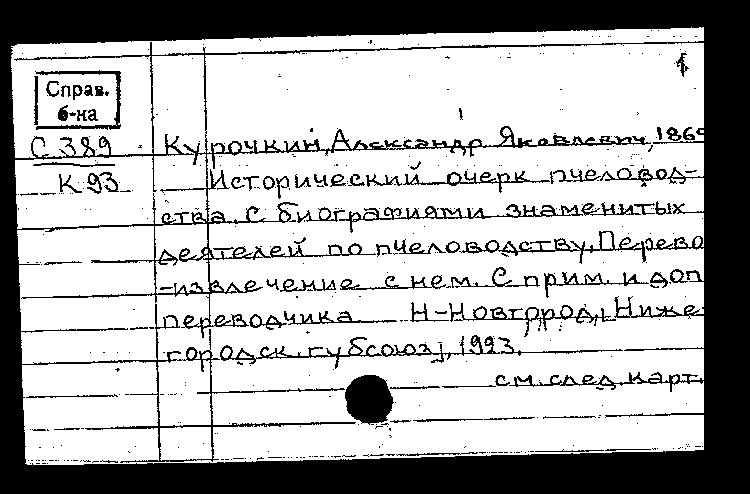 1
Справ.
б-на
С 389
К 93
Курочкин, Александр Яковлевич, 186
Исторический очерк пчеловод-
ства. С биографиями знаменитых
деятелей по пчеловодству. Перево
-извлечение с нем. С прим. и доп
переводчика Н-Новгород, Ниже-
городск. губсоюз], 1923.
см. след. карт.